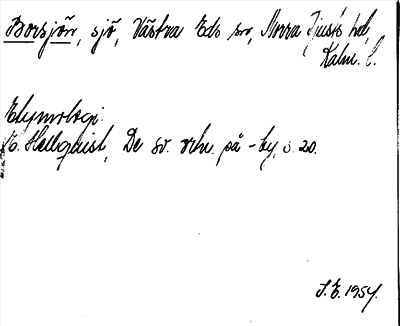 Borsjön, sjö, Västra Eds sn, Norra Tjusts hd,
Kalm. l.
Etymologi:
E. Hellquist, De sv. ortn. på -by, s. 20.
S.E. 1954.